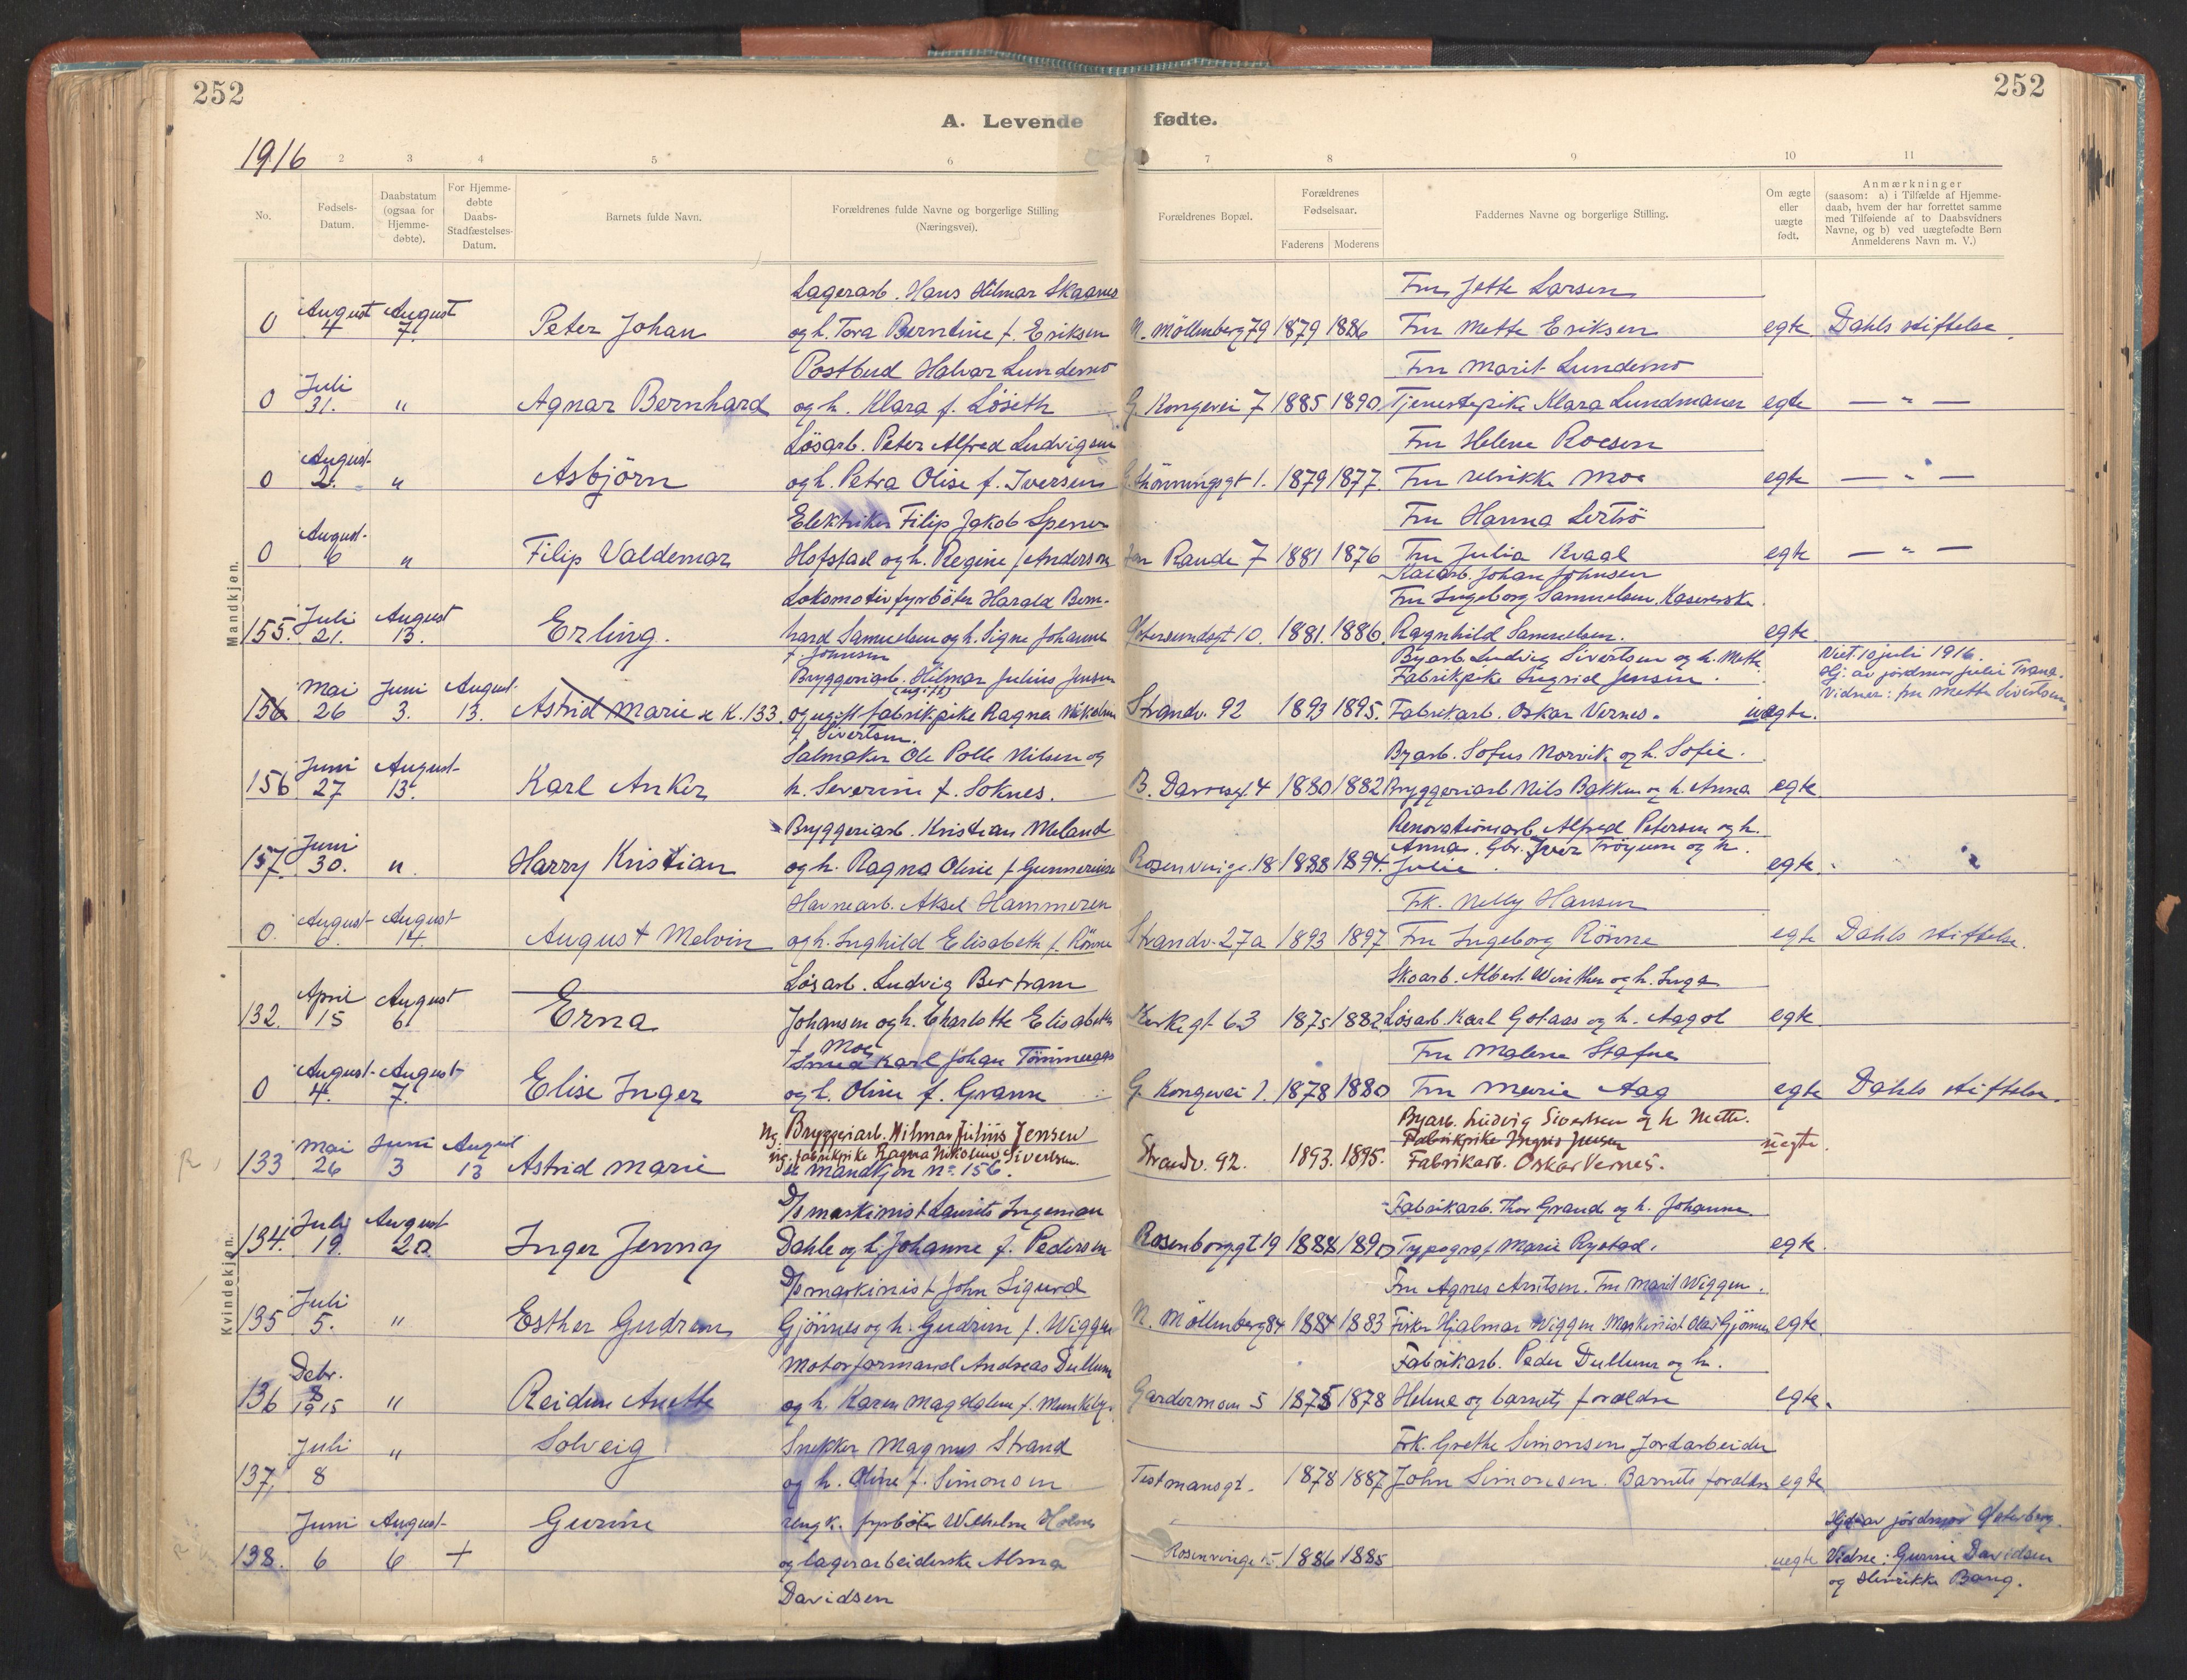 252
252
A. Levende fødte.
1916
2 3 4 5 6 7 8 9 10 11
No.
Fødsels-Datum.
Daabstatum (ogsaa for Hjemme-døbte).
For Hjemme-døbte Daabs-Stadfæstelses-Datum.
Barnets fulde Navn.
Forældrenes fulde Navne og borgerlige Stilling (Næringsvei).
Forældrenes Bopæl.
Forældrenes Fødselsaar.
Faderens Moderens
Faddernes Navne og borgerlige Stilling.
Om ægte eller uægte født.
Anmærkninger
(saasom: a) i Tilfælde af Hjemme-
daab, hvem der har forrettet samme
med Tilføiende af to Daabsvidners
Navne, og b) ved uægtefødte Børn
Anmelderens Navn m. V.)
Mandkjøn.
Lagerarb. Hans Hilmar Skaanes Fru Jette Larsen
0 August 4 August 7. Peter Johan og h. Tora Berntine f. Eriksen N. Möllenberg 79 1879 1886 Fru Mette Eriksen egte. Dahls stiftelse.
Postbud Halvar Lundemo Fru Marit Lundemo
0 Juli 31. " Agnar Bernhard og h. Klara f. Löseth G. Kongevei 7 1885 1890 Tjenestepike Klara Lundmanen egte — " —
Lösarb. Peter Alfred Ludvigsen Fru Helene Roesen
0 August 2. " Asbjörn og h. Petra Olise f. Iversen 1. 1879 1877. Fru Ulrikke Moe egte — " —
Elektriker Filip Jakob Spener Fru Hanna Lertrö
0 August 6 " Filip Valdemar Hofstad og h. Regine f. Anderson Jon Raude 7 1881 1876 Fru Julia Kvaal egte — " —
Lokomotivfyrböter Harald Bern- Kaiarb. Johan Johnsen
Fru Ingeborg Samuelsen. Kasererske
155. Juli 21. August 13. Erling. hard Samuelsen og h. Signe Johanne Östersundsgt 10. 1881. 1886. Ragnhild Samuelsen. egte
f. Johnsen Byarb. Ludvig Sivertsen og h. Mette Viet. 10 juli 1916.
Bryggeriarb. Hilmar Julius Jensen Fabrikpike Ingrid Jensen. Hj. av jordmor Julie Trana.
156 Mai 26 Juni 3. August 13. Astrid Marie se K. 133. og ugift fabrikpike Ragna Nikoline Strandv. 92 1893 1895. Fabrikarb. Oskar Vernes. uegte. Vidner: fru Mette Sivertsen
f. Sivertsen.
Salmaker Ole Polle Nilsen og Byarb. Sofus Norvik og h. Sofie.
156 Juni 27 August 13. Karl Anker h. Severine f. Soknes. 4 1880 1882 Bryggeriarb Nils Bakken og h. Anna egte
Bryggeriarb. Kristian Meland Renovationsarb Alfred Petersen og h.
Anna. Gbr. Iver Tröyum og h.
157. Juni 30. " Harry Kristian og h. Ragna Oline f. Gunneriusen Rosenvinge. 18 1888 1894. Julie. egte
Havnearb. Aksel Hammeren Frk. Nelly Hansen
0. August 6. August 14. August Melvin og h. Inghild Elisabeth f. Rönne Strandv. 27a 1893 1897 Fru Ingeborg Rönne egte Dahls stiftelse.
Kvindekjøn.
Lösarb. Ludvig Bertram Skoarb. Albert Winther og h. Inga
132. April 15 August 6. Erna Johansen og h. Charlotte Elisabeth Kirkegt 63 1875 1882 Lösarb. Karl Gotaas og h. Aagot egte
f. Moe
Smed Karl Johan Tömmeraas Fru Malene Stafne
0 August 4. August 7. Elise Inger og h. Oline f. Gramn G. Kongevei 1. 1878 1880 Fru Marie Aag egte Dahls stiftelse.
Bryggeriarb. Hilmar Julius Jensen Byarb. Ludvig Sivertsen og h Mette.
ug. fabrikpike Ragna Nikoline Sivertsen. Fabrikpike Ingrid Jensen
R 133 Mai 26 Juni 3 August 13 Astrid Marie Se Mandkjøn no 156. Strandv. 92. 1893. 1895. Fabrikarb. Oskar Vernes. uegte.
D/s maskinist Laurits Ingeman Fabrikarb. Thor Grand og h. Johanne
134. Juli 19. August 20. Inger Jenny Dahle og h. Johanne f. Pedersen Rosenborggt 19 1888 1890 Typograf Marie Rystad. egte.
D/s maskinist John Sigurd Fru Agnes Arntsen. Fru Marit Wiggen.
135 Juli 5. " Esther Gudrun Gjönnes og h. Gudrun f. Wiggen N. Möllenberg 84 1884 1883 Fisker Hjalmar Wiggen. Maskinist Olav Gjönnes egte.
Motorformand Andreas Dullum Fabrikarb. Peder Dullum og h.
136 Debr. 8 1915 " Reidun Anette og h. Karen Magdalene f. Munkeby. Gardermoen 5 1875 1878 Helene og barnets foreldre egte.
Juli " Solveig Snekker Magnus Strand Frk. Grethe Simonsen Jordarbeider
137. 8 og h. Oline f. Simonsen Testmansgt. 1878 1887 John Simonsen. Barnets foreldre egte
Juni August Gunni ungk. fyrböter Wilhelm Holmes Hjd: av jordmor Österberg.
138. 6 6 + og lagerarbeiderske Alma Rosenvinge 15 1886 1885 uegte Vidne: Gunni Davidsen
Davidsen og Henrikke Bang.